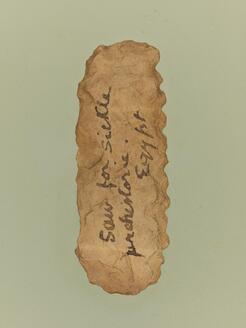 Saw for sickle
prehistoric.
Egypt